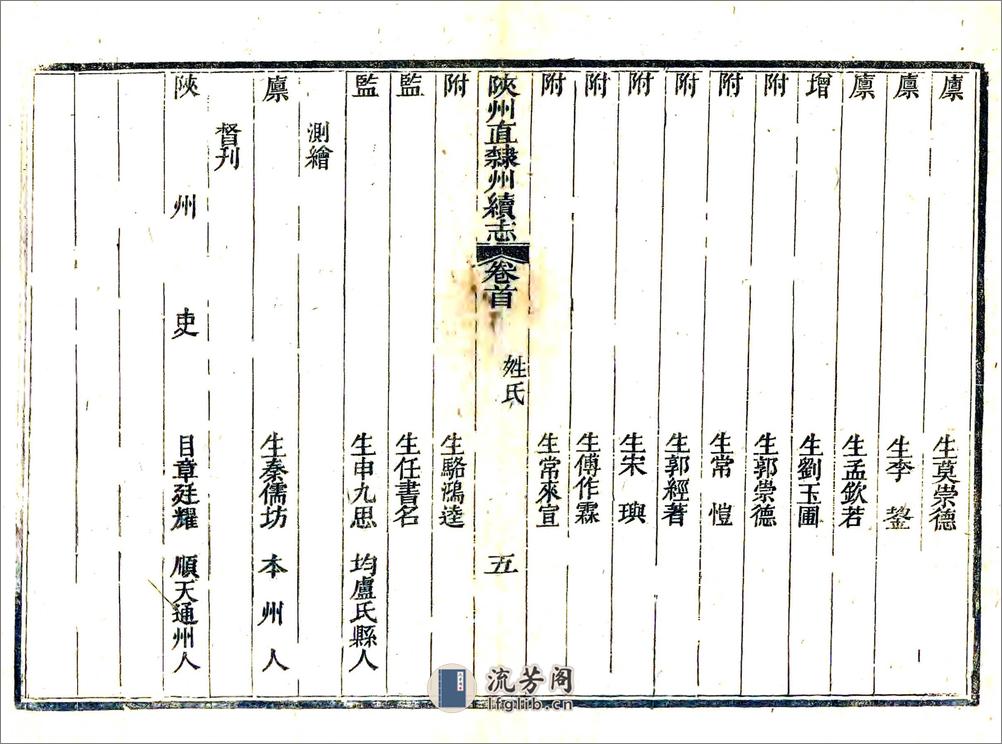 廪生莫崇德
廪生李鋆
廪生孟欽若
增生劉玉圃
附生郭崇德
附生常愷
附生郭經著
附生宋璵
附生傅作霖
附生常來宣
陝州直隸州續志 卷首 姓氏 五
附生駱鴻逵
監生任書名
監生申九思 均盧氏縣人
測繪
廪生秦儒坊 本州人
督刋
陝州吏目章廷耀 順天通州人
流芳阁
lfglib.cn